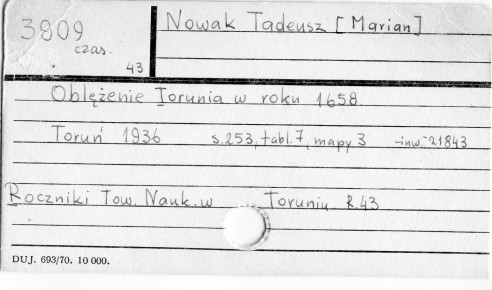 3809 Nowak Tadeusz [Marian]
czas.
43
Oblężenie Torunia w roku 1658
Toruń 1936 s.253, tabl.7, mapy 3 inw. 21843
Roczniki Tow. Nauk. w Toruniu R.43
DUJ. 693/70. 10 000.